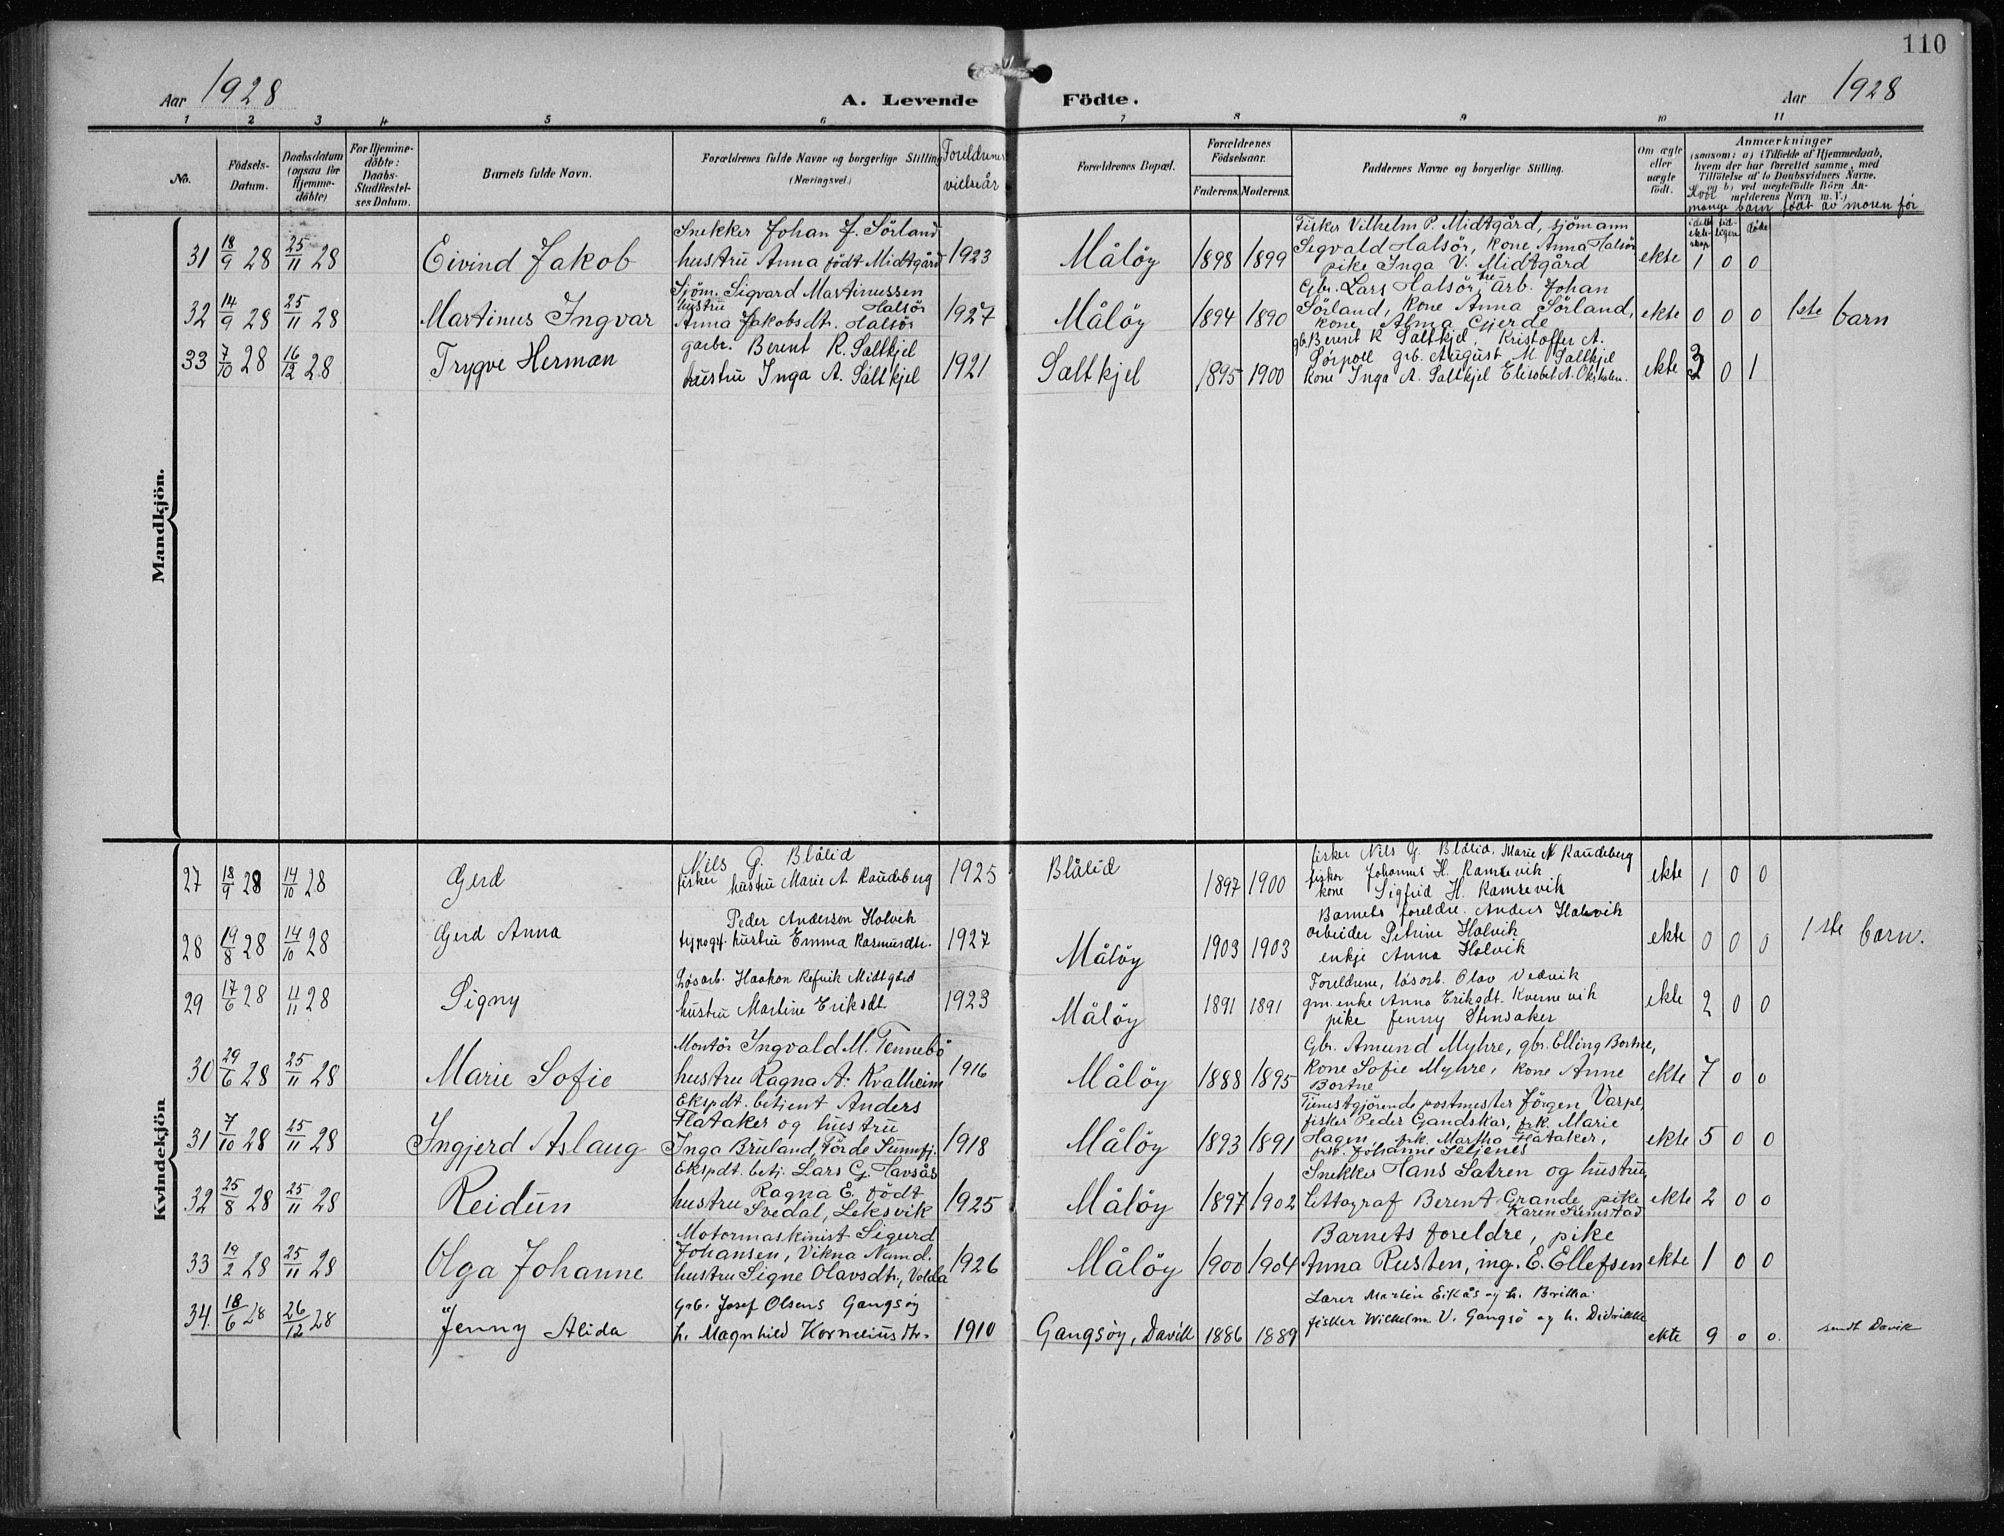 110
Aar 1928
A. Levende Födte.
Aar 1928
1 2 3 4 5 6 7 8 9 10 11
No.
Födsels-Datum.
Daabsdatum (ogsaa for Hjemme-döbte)
For Hjemme-döbte: Daabs-Stadfæstel-ses Datum.
Barnets fulde Navn.
Forældrenes fulde Navne og borgerlige Stilling (Næringsvei.)
Foreldrenes vielseår
Forældrenes Bopæl.
Forældrenes Födselsaar.
Faderens. Moderens.
Faddernes Navne og borgerlige Stilling.
Om ægte eller uægte födt.
Anmærkninger
(saasom: a) i Tilfælde af Hjemmedaab, hvem der har forrettet samme, med Tilföielse af to Daabsvidners Navne, og b) ved uægtefödte Börn An-melderens Navn m. V.)
Hvor mange barn födt av moren för
i dette ekte-skap
tid-ligere
döde
Mandkjön.
31 18/9 28 25/11 28 Eivind Jakob
Snekker Johan J. Sörland
hustru Anna födt Midtgård 1923
Målöy 1898 1899
Fisker Vilhelm P. Midtgård, sjömann
Sigvald Halsör, kone Anna Halsör
pike Inga V. Midtgård
ekte 1 0 0
32 14/9 28 25/11 28 Martinus Ingvar
Sjöm. Sigvard Martinussen
hustru Halsör
Anna Jakobsdtr. Halsör 1927
Målöy 1894 1890
Gbr. Lars Halsör, arb. Johan
Sörland, kone Anna Sörland,
kone Alma Gjerde
ekte 0 0 0 1ste barn
33 7/10 28 16/12 28 Trygve Herman
garbr. Berent R. Saltkjel
hustru Inga A. Saltkjel 1921
Saltkjel 1895 1900
gb. Berent R Saltkjel, Kristoffer A.
Sörpoll grb. August M. Saltkjel
kone Inga A. Saltkjel Elisabet A. Oksholm.
ekte 3 0 1
Kvindekjön
27 18/9 28 14/10 28 Gerd
Nils G. Blålid
fisker hustru Marie A. Raudeberg 1925
Blålid 1897 1900
fisker Nils G. Blålid. Marie A Raudeberg
fisker Johannes H. Ramsevik
kone Sigfrid H. Ramsevik
ekte 1 0 0
28 19/8 28 14/10 28 Gerd Anna
Peder Anderson Holvik
typogr. hustru Emma Rasmusdtr. 1927
Målöy 1903 1903
Barnets foreldre. Anders Holevik
arbeider Petrine Holvik
enkje Anna Holvik
ekte 0 0 0 1ste barn.
29 17/6 28 4/11 28 Signy
Lösarb. Haakon Refvik Midtgård
hustru Martine Eriksdt. 1923
Målöy 1891 1891
Foreldrene, lösarb. Olav Vedvik
gm. enke Anna Eriksdt. Kvernevik
pike Jenny Stensaker
ekte 2 0 0
30 29/6 28 25/11 28 Marie Sofie
Montör Ingvald M. Tennebö
hustru Ragna A. Kvalheim 1916
Målöy 1888 1895
Gbr. Amund Myhre, gbr. Elling Bortne,
kone Sofie Myhre, kone Anne
Bortne
ekte 7 0 0
31 7/10 28 25/11 28 Ingjerd Aslaug
Ekspdt. betjent Anders
Flataker og hustru
Inga Bruland, Förde Sunnfj. 1918
Målöy 1893 1891
Tjenestgjörende postmester Jörgen Varpe,
fisker Peder Gandskar, frk. Marie
Hagen, frk. Martha Flataker,
frk. Johanne Seljenes
ekte 5 0 0
32 25/8 28 25/11 28 Reidun
Ekspdt. betj. Lars G. Havsås
hustru Ragna E. födt
Svedal, Leksvik 1925
Målöy 1897 1902
Snekker Hans Satren og hustru,
Littograf Berent Grande, pike
Karen Sumstad
ekte 2 0 0
33 19/2 28 25/11 28 Olga Johanne
Motormaskinist Sigurd
Johansen, Vikna Namd.
hustru Signe Olavsdtr, Volda 1926
Målöy 1900 1904
Barnets foreldre, pike
Anna Rusten, ing. E. Ellefsen
ekte 1 0 0
34. 18/6 28 26/12 28 Jenny Alida
Grb. Josef Olsens Gangsöy
h. Magnhild Korneliusdtr. 1910
Gangsöy, Davik 1886 1889
Lærer Martin Eikås og h. Beritha
fisker Wilhelm V. Gangsö og h. Didrikke
ekte 9 0 0. sendt Davik